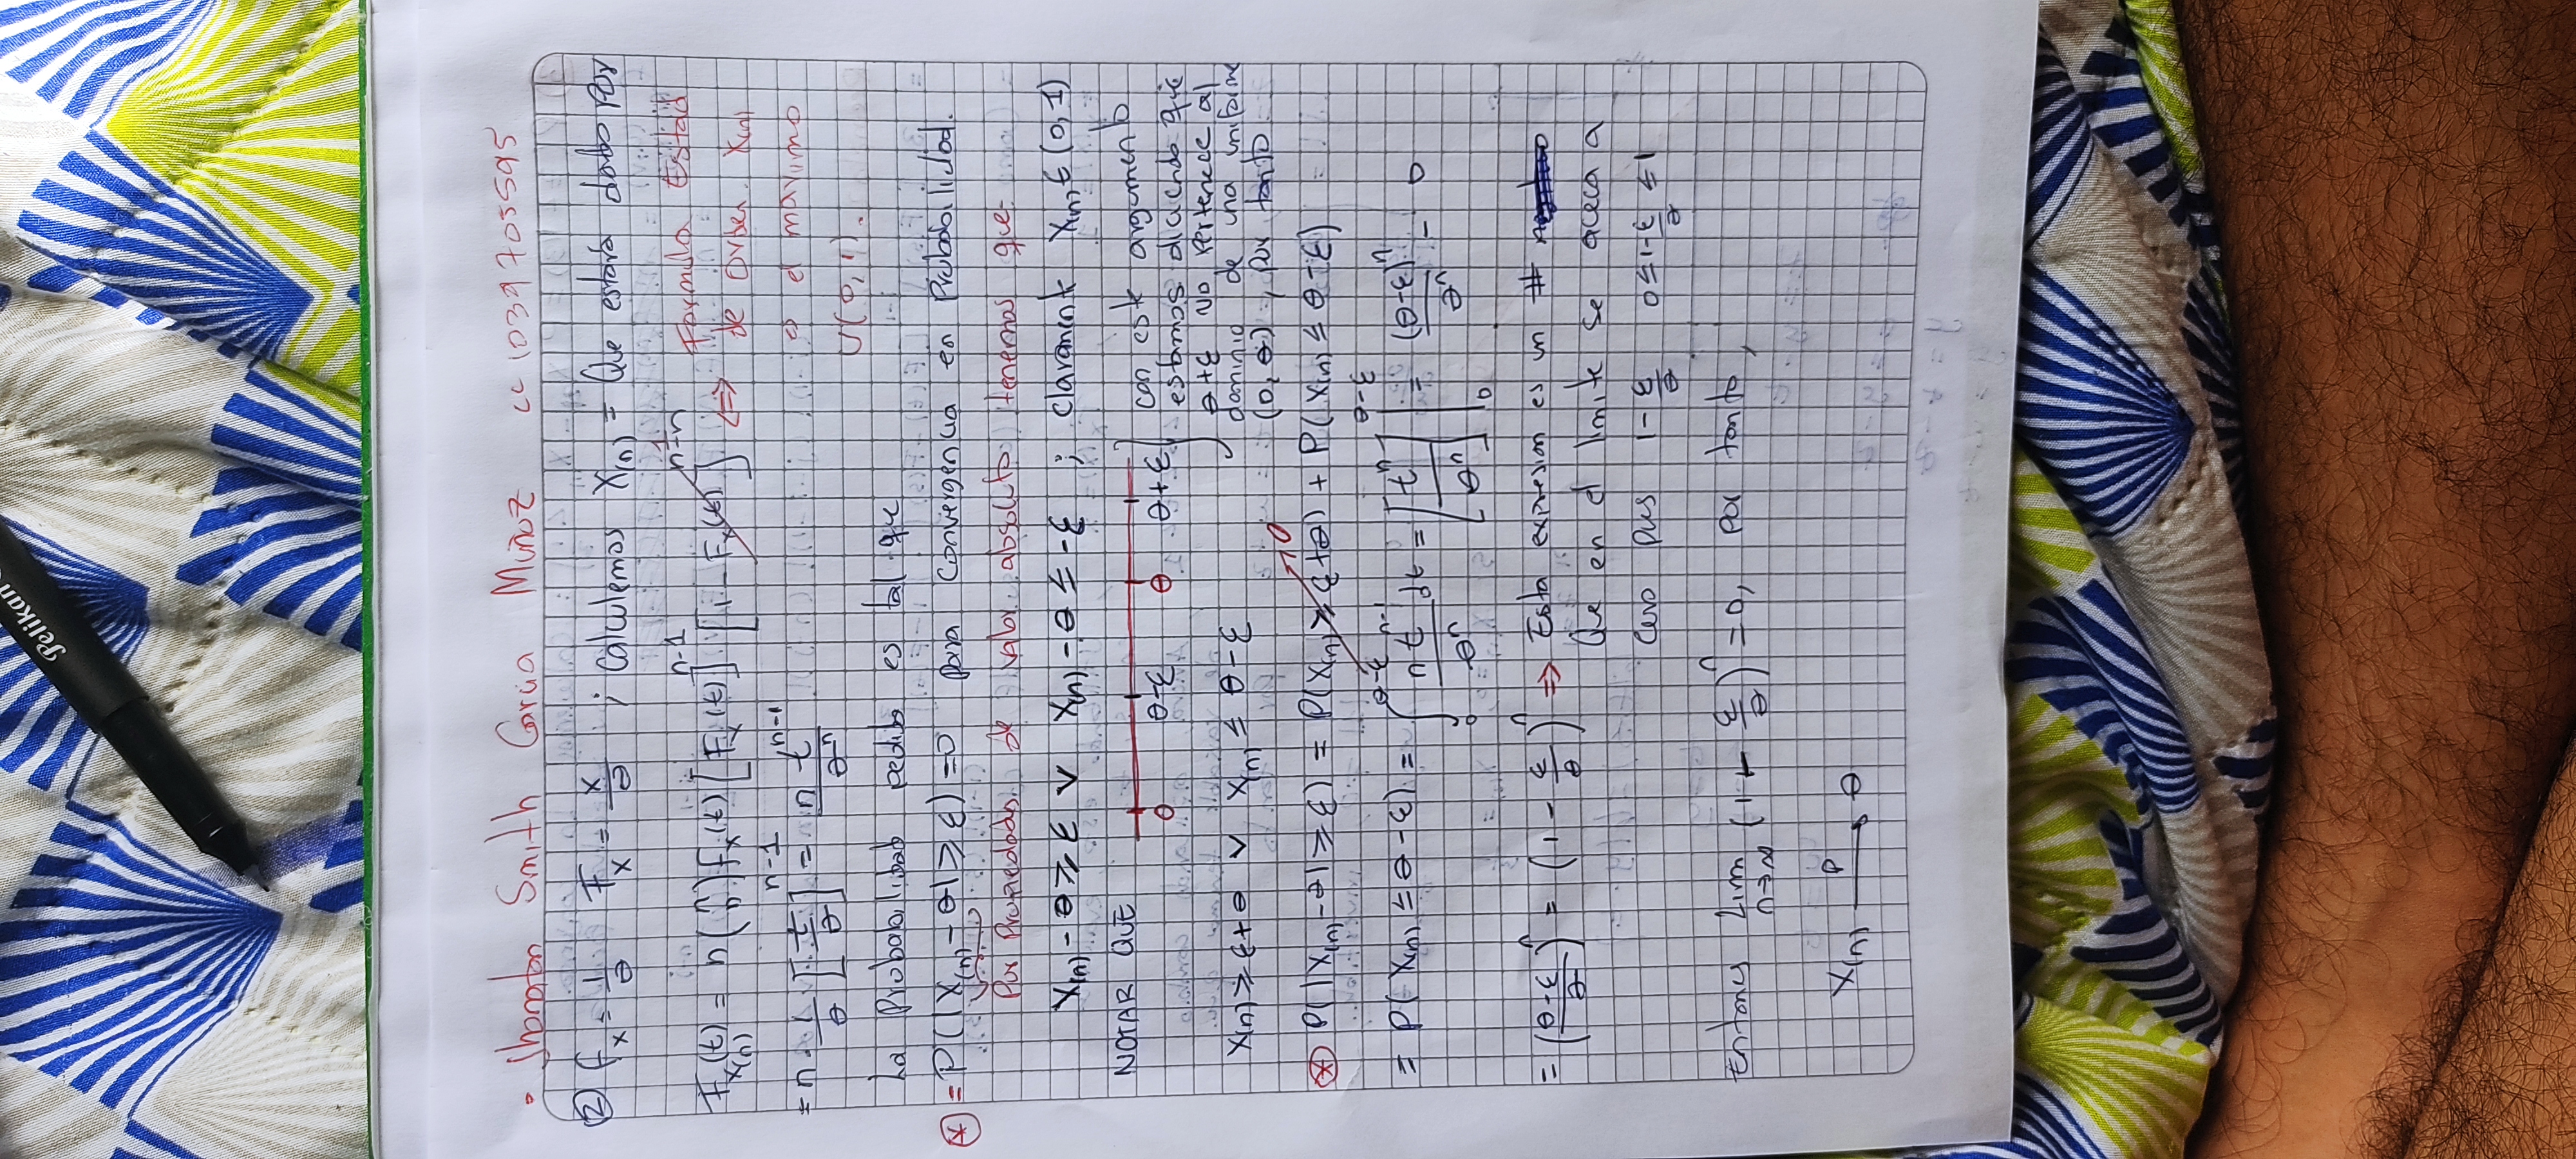 Pelikan
• Jhonatan Smith García Muñoz cc 1039705595
② f_x = 1/θ F_x = x/θ ; calculemos X(n) = Que estará dado por
F_X(n)(t) = n (n n) f_x(t) [F_x(t)]^n-1 [1 - F_x(t)]^n-n 1 ⇔ Formula Estad
de orden X(n)
= n · 1/θ [t/θ]^n-1 = n t^n-1/θ^n
es el maximo
U(0,1).
La Probabilidad pedida es tal que
* = P(|X(n) - θ| ≥ ε) = 0 para convergencia en Probabilidad.
Por Propiedades de valor absoluto tenemos que
X(n) - θ ≥ ε ∨ X(n) - θ ≤ -ε ; claramente X(n) ∈ (0, 1)
NOTAR QUE
0 θ-ε θ θ+ε
con este argumento
estamos diciendo que
θ+ε no pertenece al
dominio de una uniforme
(0, θ), por tanto
X(n) ≥ θ+ε ∨ X(n) ≤ θ-ε
* P(|X(n) - θ| ≥ ε) = P(X(n) ≥ ε+θ) → 0 + P(X(n) ≤ θ-ε)
= P(X(n) ≤ θ-ε) = ∫_0^θ-ε n t^n-1/θ^n dt = [t^n/θ^n] |_0^θ-ε = (θ-ε)^n/θ^n - 0
= (θ-ε/θ)^n = (1 - ε/θ)^n ⇒ Esta expresion es un #
Que en el limite se aceca a
cero pues 1 - ε/θ 0 ≤ 1 - ε/θ ≤ 1
Entonces Lim n→∞ (1 - ε/θ)^n = 0, por tanto,
X(n) —P→ θ